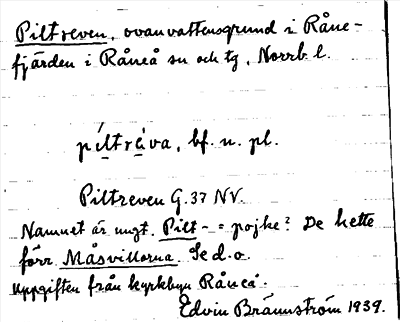 Piltreven, ovanvattensgrund i Råne-
fjärden i Råneå sn och tg, Norrb. l.
píltrèva, bf. n. pl.
Piltreven G. 37 NV.
Namnet är ungt. Pilt- = pojke? De hette
förr Måsvillorna. Se d.o.
Uppgiften från kyrkbyn Råneå.
Edvin Brännström 1939.